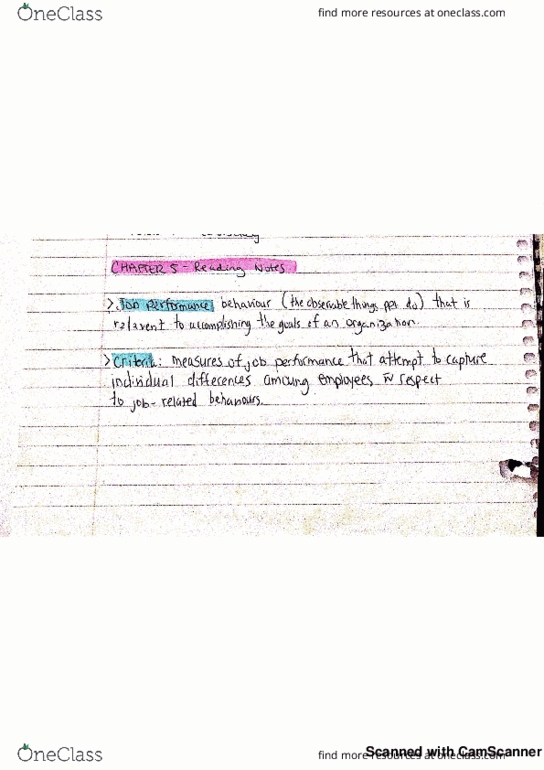 OneClass
find more resources at oneclass.com
CHAPTER 5 - Reading Notes
> Job performance: behaviour (the observable things ppl do) that is
relavent to accomplishing the goals of an organization.
> Criteria: measures of job performance that attempt to capture
individual differences among employees w respect
to job-related behaviours.
OneClass
find more resources at oneclass.com
Scanned with CamScanner